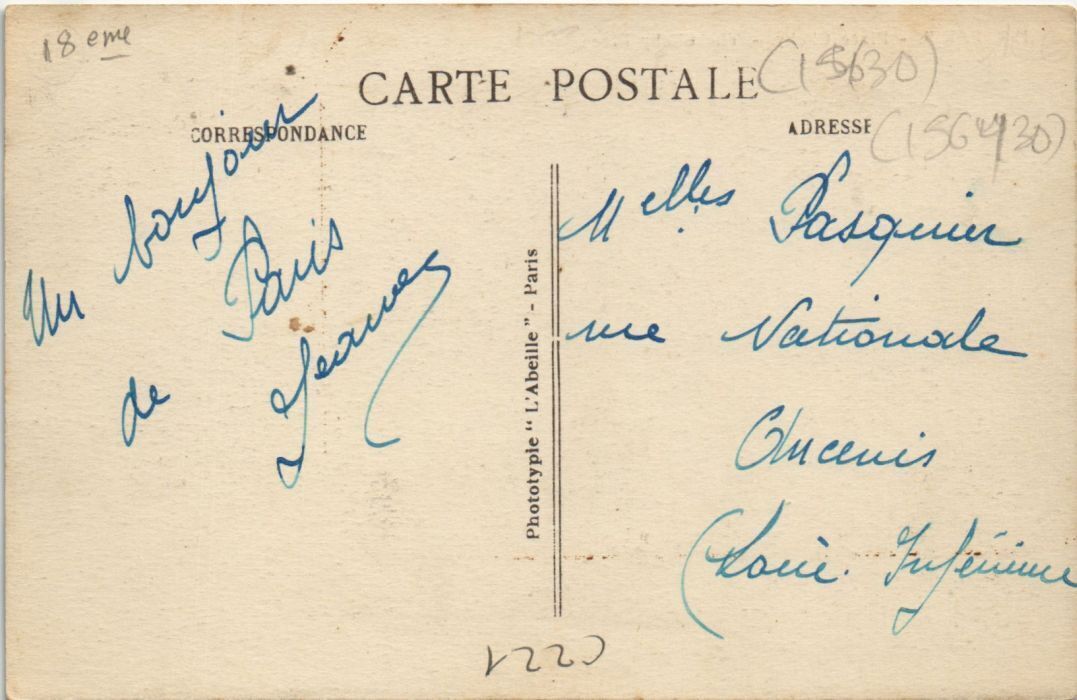 18 eme
CARTE POSTALE
(15630)
CORRESPONDANCE
ADRESSE
(1564/30)
Un bonjour
de Paris
Jeanne
Phototypie " L'Abeille " - Paris
Melles Pasquier
rue Nationale
Ancenis
(Loire Inférieure